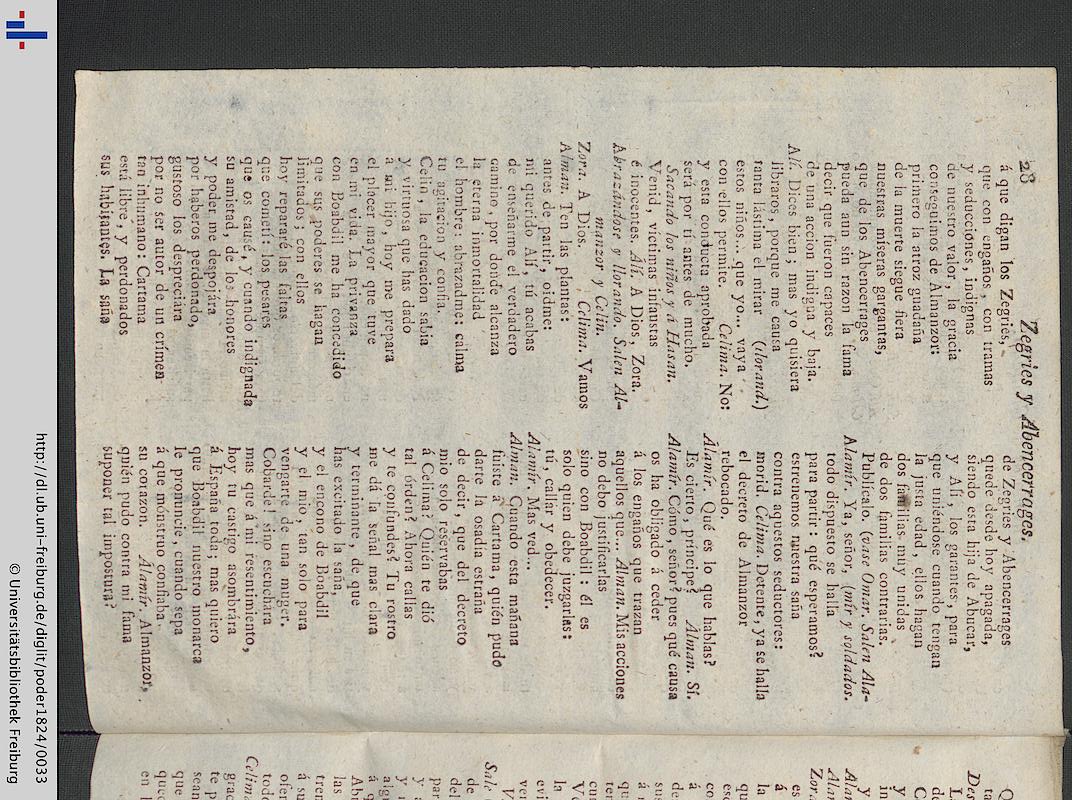 28
Zegries y Abencerrages.
á que digan los Zegries,
que con engaños, con tramas
y seducciones, indignas
de nuestro valor, la gracia
conseguimos de Almanzor:
primero la atroz guadaña
de la muerte siegue fiera
nuestras míseras gargantas,
que de los Abencerrages
pueda aun sin razon la fama
decir que fueron capaces
de una accion indigna y baja.
Alí. Dices bien; mas yo quisiera
libraros, porque me causa
tanta lástima el mirar (llorand.)
estos niños... que yo... vaya
con ellos permite. Celima. No:
y esta conducta aprobada
será por tí antes de mucho.
Sacando los niños y á Hasan.
Venid, víctimas infaustas
é inocentes. Alí. A Dios, Zora.
Abrazándose y llorando. Salen Al-
manzor y Celin.
Zora. A Dios. Celima. Vamos
Alman. Ten las plantas:
antes de partir, oidme:
mi querido Alí, tú acabas
de enseñarme el verdadero
camino, por donde alcanza
la eterna inmortalidad
el hombre: abrazadme: calma
tu agitacion y confia.
Celin, la educacion sabia
y virtuosa que has dado
á mi hijo, hoy me prepara
el placer mayor que tuve
en mi vida. La privanza
con Boabdil me ha concedido
que sus poderes se hagan
limitados; con ellos
hoy repararé las faltas
que cometí: los pesares
que os causé, y cuando indignada
su amistad, de los honores
y poder me despojára
por haberos perdonado,
gustoso los despreciára
por no ser autor de un crímen
tan inhumano: Cartama
está libre, y perdonados
sus habitantes. La saña
de Zegries y Abencerrages
quede desde hoy apagada,
siendo esta hija de Abucar,
y Alí, los garantes, para
que uniendose cuando tengan
la justa edad, ellos hagan
dos familias muy unidas
de dos familias contrarias.
Publícalo. (vase Omar. Salen Ala-
Alamir. Ya, señor, (mir y soldados.
todo dispuesto se halla
para partir: qué esperamos?
estrenemos nuestra saña
contra aquestos seductores:
morid. Celima. Detente, ya se halla
el decreto de Almanzor
rebocado.
Alamir. Qué es lo que hablas?
Es cierto, príncipe? Alman. Sí.
Alamir. Cómo, señor? pues qué causa
os ha obligado á ceder
á los engaños que trazan
aquellos que... Alman. Mis acciones
no debo justificarlas
sino con Boabdil: él es
solo quien debe juzgarlas:
tú, callar y obedecer.
Alamir. Mas ved...
Alman. Cuando esta mañana
fuiste á Cartama, quién pudo
darte la osadía estraña
de decir, que del decreto
mio solo reservabas
á Celima? Quién te dió
tal órden? Ahora callas
y te confundes? Tu rostro
me dá la señal mas clara
y terminante, de que
has excitado la saña,
y el encono de Boabdil
y el mio, tan solo para
vengarte de una muger.
Cobarde! sino escuchára
mas que á mi resentimiento,
hoy tu castigo asombrára
á España toda; mas quiero
que Boabdil nuestro monarca
le pronuncie, cuando sepa
á que mónstruo confiaba
su corazon. Alamir. Almanzor,
quién pudo contra mi fama
suponer tal impostura?
http://dl.ub.uni-freiburg.de/diglit/poder1824/0033
© Universitätsbibliothek Freiburg